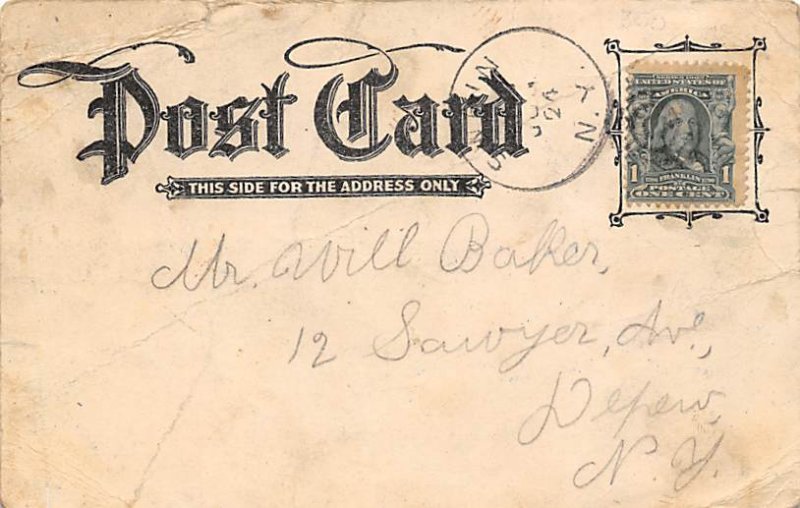 Post Card
THIS SIDE FOR THE ADDRESS ONLY
24
N.Y.
UNITED STATES OF
AMERICA
1 FRANKLIN 1
POSTAGE
ONE CENT
Mr. Will Baker,
12 Sawyer, Ave.,
Depew,
N.Y.